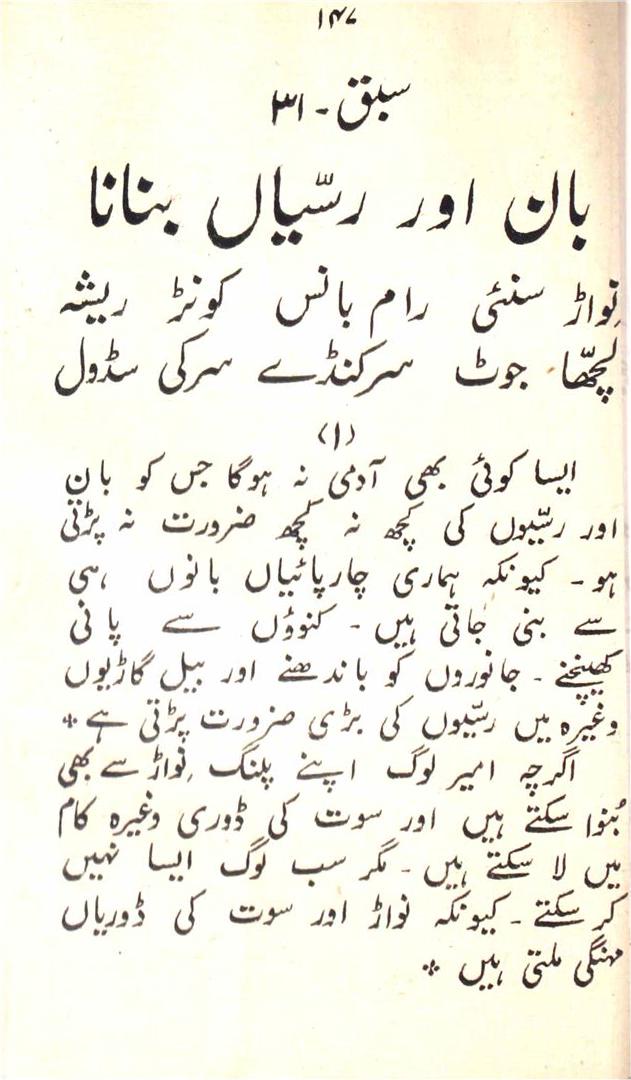 ۱۴۷
سبق - ۳۱
بان اور رسّیاں بنانا
نِواڑ سنئی رام بانس کونڑ ریشہ
لچھّا جوٹ سرکنڈے سرکی سڈول
(۱)
ایسا کوئی بھی آدمی نہ ہوگا جس کو بان
اور رسّیوں کی کچھ نہ کچھ ضرورت نہ پڑتی
ہو - کیونکہ ہماری چارپائیاں بانوں ہی
سے بنی جاتی ہیں - کنوؤں سے پانی
کھینچنے - جانوروں کو باندھنے اور بیل گاڑیوں
وغیرہ میں رسّیوں کی بڑی ضرورت پڑتی ہے *
اگرچہ امیر لوگ اپنے پلنگ نِواڑ سے بھی
بُنوا سکتے ہیں اور سوت کی ڈوری وغیرہ کام
میں لا سکتے ہیں - مگر سب لوگ ایسا نہیں
کر سکتے - کیونکہ نواڑ اور سوت کی ڈوریاں
مہنگی ملتی ہیں *